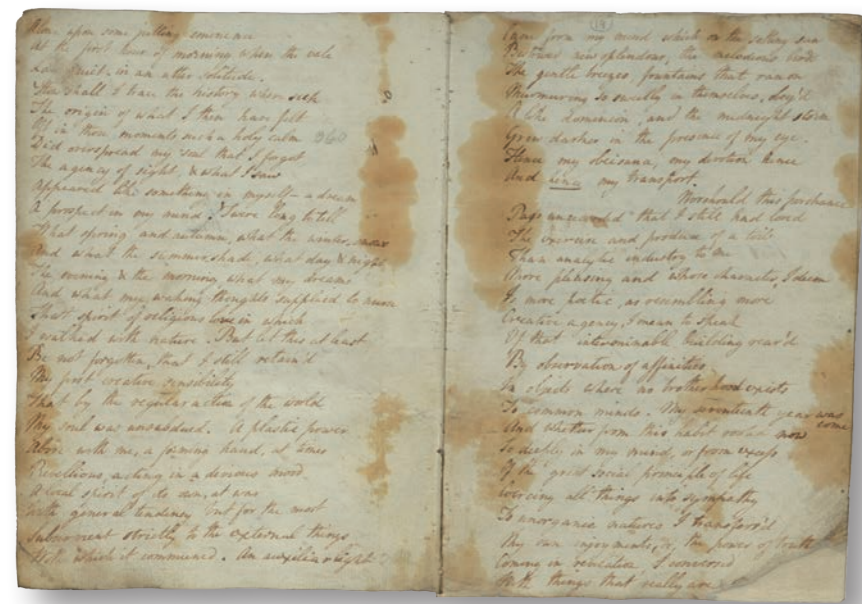 Alone upon some jutting eminence
At the first hour of morning when the vale
Lay quiet in an utter solitude.
How shall I trace the history where seek
The origin of what I then have felt
Oft in those moments such a holy calm 360
Did overspread my soul that I forgot
The agency of sight, & what I saw
Appeared like something in myself – a dream
A prospect in my mind. Twere long to tell
What spring and autumn, what the winter snows
And what the summer shade, what day & night
The evening & the morning, what my dreams
And what my waking thoughts supplied to nurse
That spirit of religious love in which
I walked with nature. But let this at least
Be not forgotten, that I still retain'd
My first creative sensibility
That by the regular action of the world
My soul was unsubdued. A plastic power
Abode with me, a forming hand, at times
Rebellious, acting in a devious mood
A local spirit of its own, at war
With general tendency but for the most
Subservient strictly to the external things
With which it communed. An auxiliar light
19
Came from my mind which on the setting sun
Bestow'd new splendour, the melodious birds
The gentle breezes, fountains that ran on
Murmuring so sweetly in themselves, obey'd
A like dominion, and the midnight storm
Grew darker in the presence of my eye.
Hence my obeisance, my devotion hence
And hence my transport.
Nor should this perchance
Pass unrecorded that I still had loved
The exercise and produce of a toil
Than analytic industry to me
More pleasing and whose character, I deem
Is more poetic, as resembling more
Creative agency, I mean to speak
Of that interminable building rear'd
By observation of affinities
In objects where no brotherhood exists
To common minds. My seventeenth year was come
And whether from this habit rooted now
So deeply in my mind, or from excess
Of the great social principle of life
Coercing all things into sympathy
To unorganic natures I transferr'd
My own enjoyments, or, the power of truth
Coming in revelation, I conversed
With things that really are